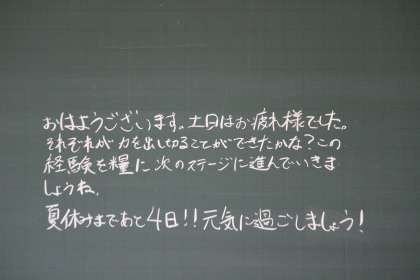 おはようございます。土日はお疲れ様でした。
それぞれが力を出し切ることができたかな?この
経験を糧に次のステージに進んでいきま
しょうね。
夏休みまであと4日!!元気に過ごしましょう!